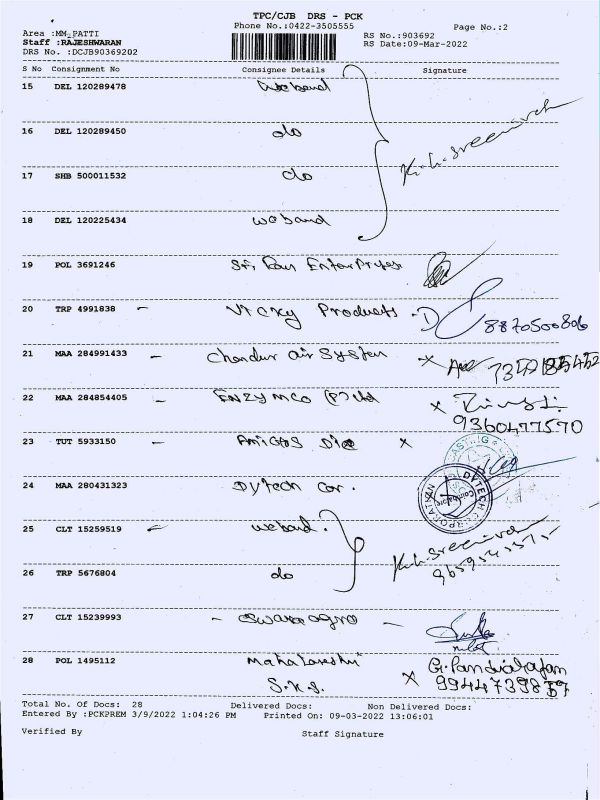 TPC/CJB DRS - PCK
Phone No.:0422-3505555
Page No.:2
Area :MM_PATTI
Staff :RAJESHWARAN
DRS No. :DCJB90369202
RS No.:903692
RS Date:09-Mar-2022
S No Consignment No Consignee Details Signature
15 DEL 120289478 weband
16 DEL 120289450 do
K.h.sreenivasan
17 SHB 500011532 do
18 DEL 120225434 weband
19 POL 3691246 Enterprises
20 TRP 4991838 - Vicky Products
8870500806
21 MAA 284991433 - Air System x
22 MAA 284854405 - Enzymco (P) Ltd x
9360477570
23 TUT 5933150 - Amigos x
24 MAA 280431323 Dytech Cor.
DYTECH CORPORATION
Coimbatore
25 CLT 15259519 - weband.
26 TRP 5676804 do
27 CLT 15239993 - -
28 POL 1495112 x G.Pandiarajan
S.K.S.
Total No. Of Docs: 28 Delivered Docs: Non Delivered Docs:
Entered By :PCKPREM 3/9/2022 1:04:26 PM Printed On: 09-03-2022 13:06:01
Verified By Staff Signature